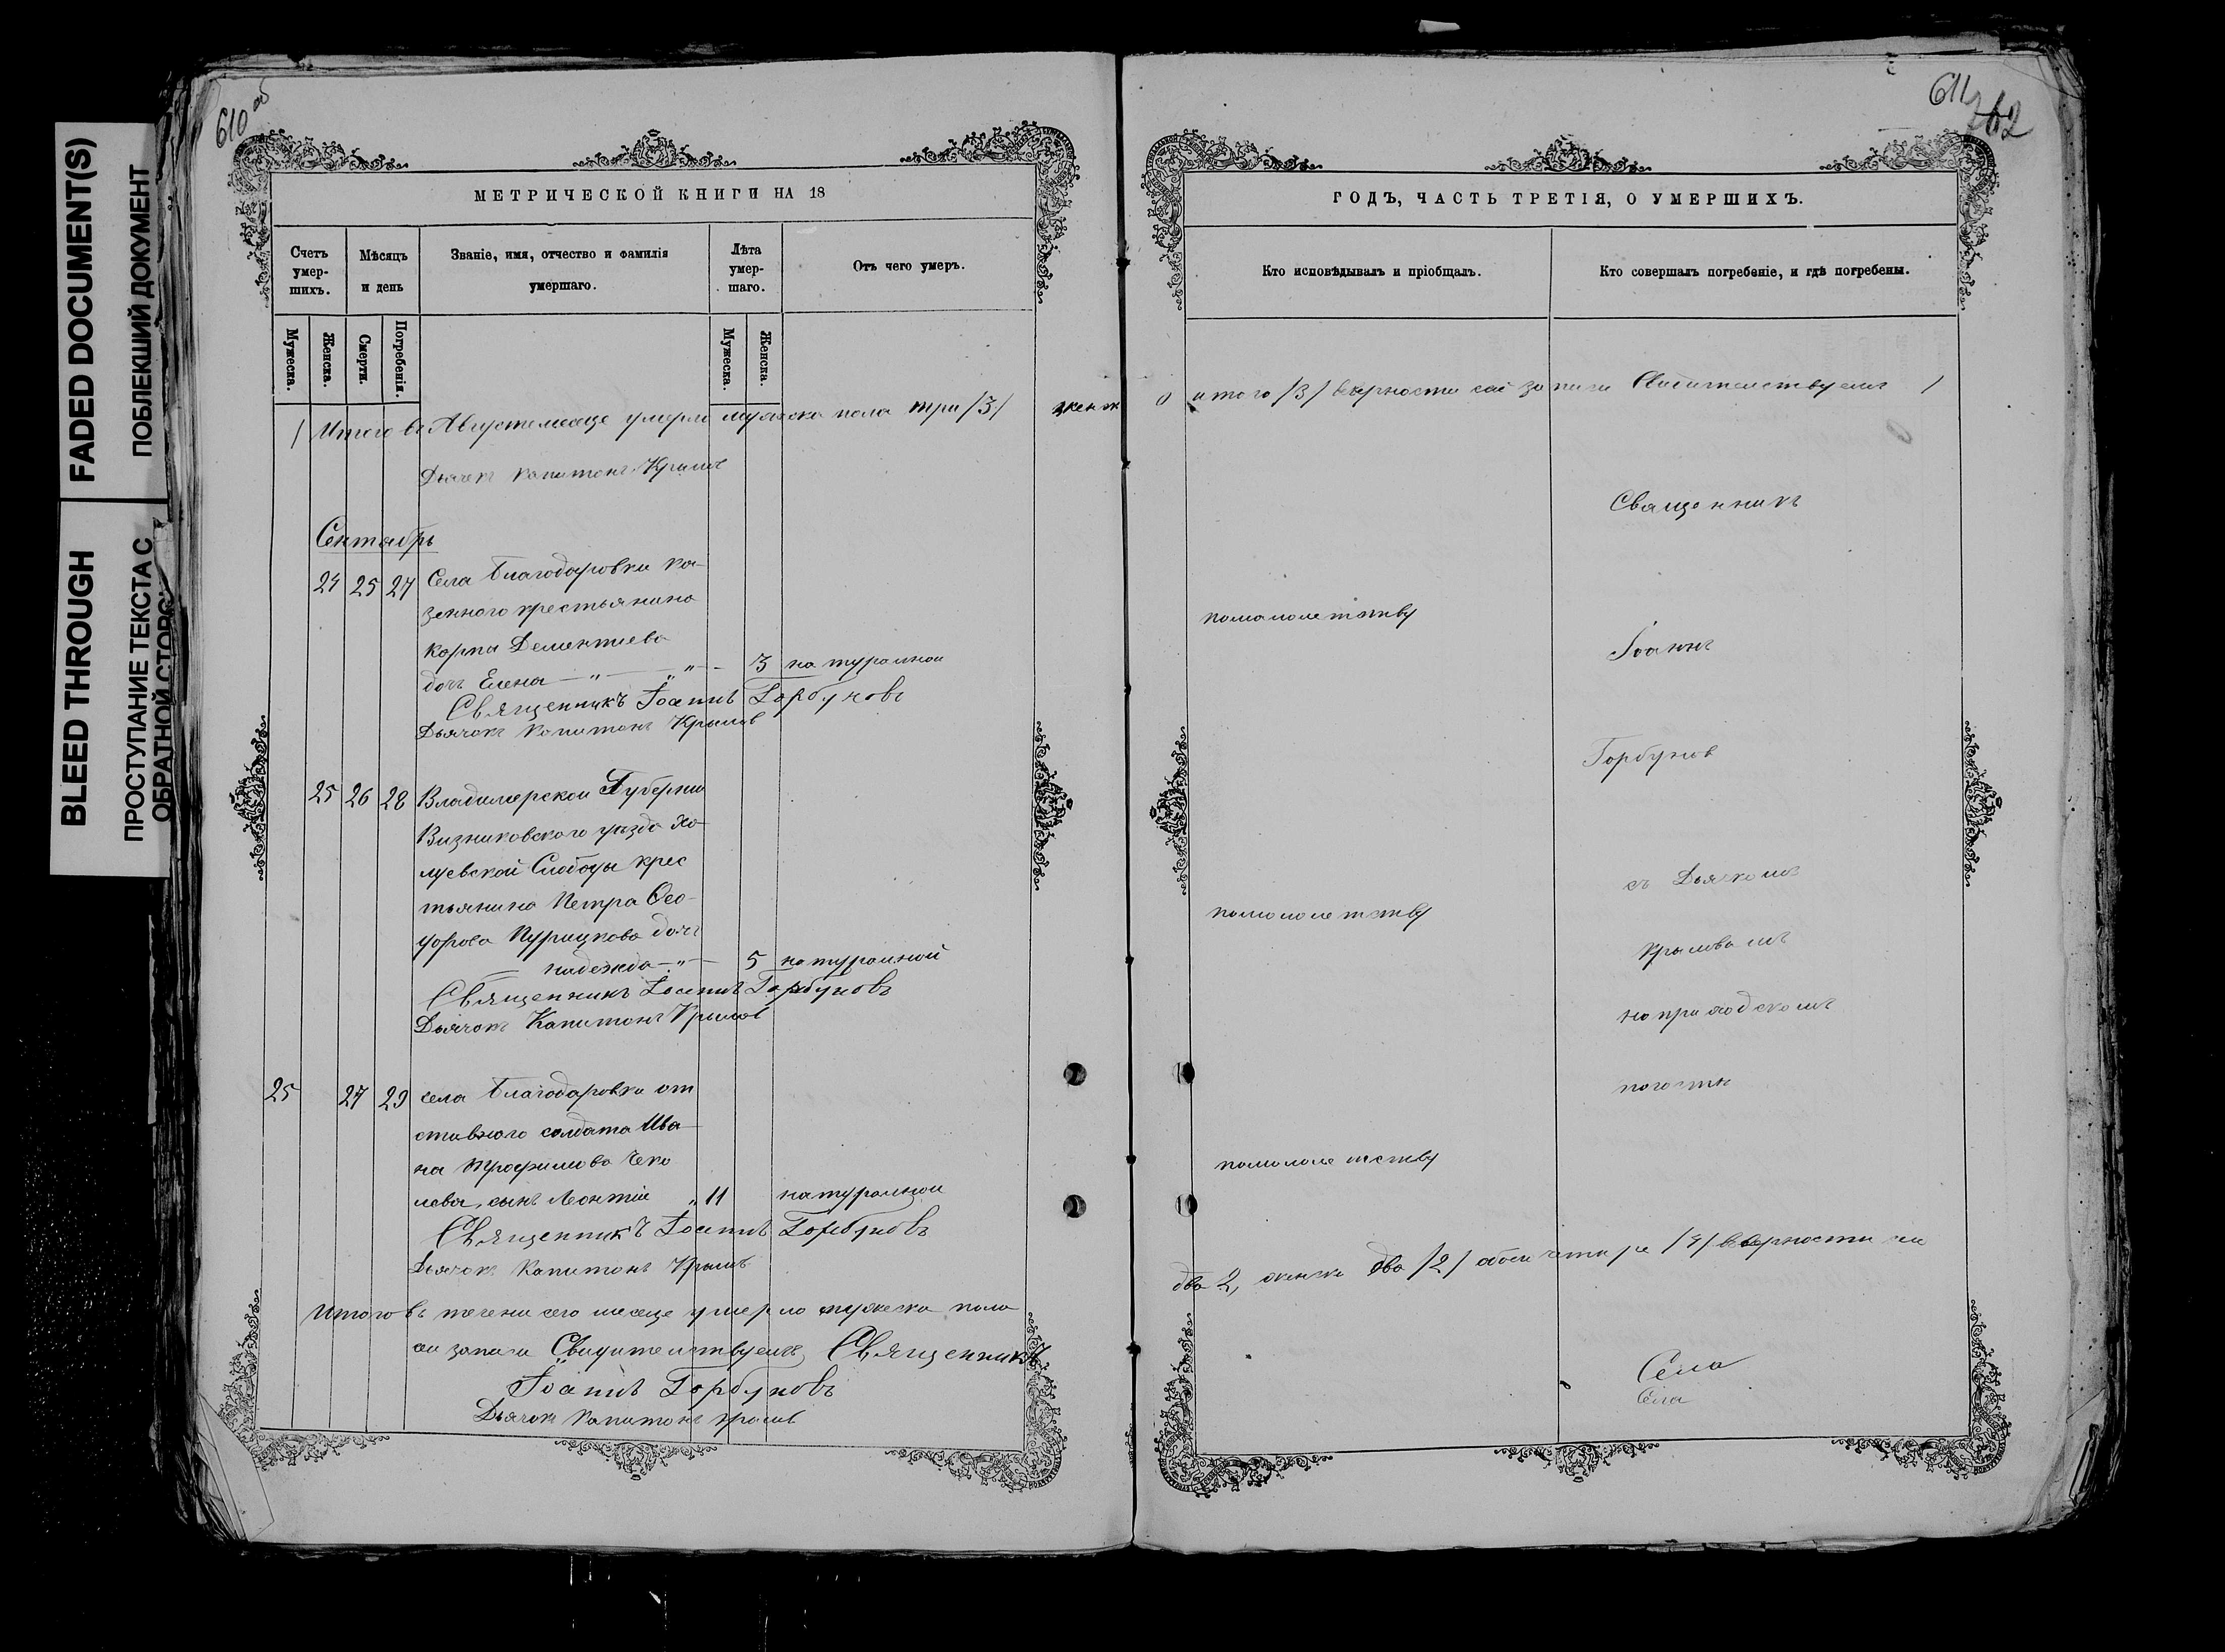 FADED DOCUMENT(S)
ПОБЛЕКШИЙ ДОКУМЕНТ
BLEED THROUGH
ПРОСТУПАНИЕ ТЕКСТА С
ОБРАТНОЙ СТОРО
610 об
МЕТРИЧЕСКОЙ КНИГИ НА 18
Счетъ умер-шихъ.
Мѣсяцъ и день
Званіе, имя, отчество и фамилія умершаго.
Лѣта умер-шаго.
Отъ чего умеръ.
Мужеска.
Женска.
Смерти.
Погребенія.
Мужеска.
Женска.
Итого въ Августе месеце умерло мужеска пола три /3/ женск
Дьячекъ Капитонъ Крыловъ
Сентябрь
24 25 27 Села Благодаровки ка-
зенного крестьянина
Карпа Дементиева
дочь Елена 3 натуралной
Священникъ Іоаннъ Горбуновъ
Дьячокъ Капитонъ Крыловъ
25 26 28 Владимерской Губерни
Визниковского уезда Хо-
луевской Слободы крес
тьянина Петра Фео-
дорова дочь
надежда 5 натуралной
Священникъ Іоаннъ Горбуновъ
Дьячокъ Капитонъ Крылов
25 27 29 села Благодаровки от
ставного солдата Ива-
на Трофимова Чека
лева, сынъ Леонтий 11 натуралной
Священникъ Іоаннъ Горбуновъ
Дьячокъ Капитонъ Крыловъ
Итого въ течени сего месеце умерло мужеска пола
сей записи Свидителствуемъ, Священникъ
Іоаннъ Горбуновъ
Дьячокъ Капитонъ Крылов
611
762
ГОДЪ, ЧАСТЬ ТРЕТІЯ, О УМЕРШИХЪ.
Кто исповѣдывалъ и пріобщалъ.
Кто совершалъ погребеніе, и гдѣ погребены.
0 итого /3/ вверности сей записи Свидителствуемъ
Священникъ
помалолетству
Іоаннъ
Горбунов
съ Дьячкомъ
помалолетству
Крыловымъ
на приходскомъ
погосте
помалолетству
два 2, женска два /2/ обоего четыре /4/ вверности
Села
Села